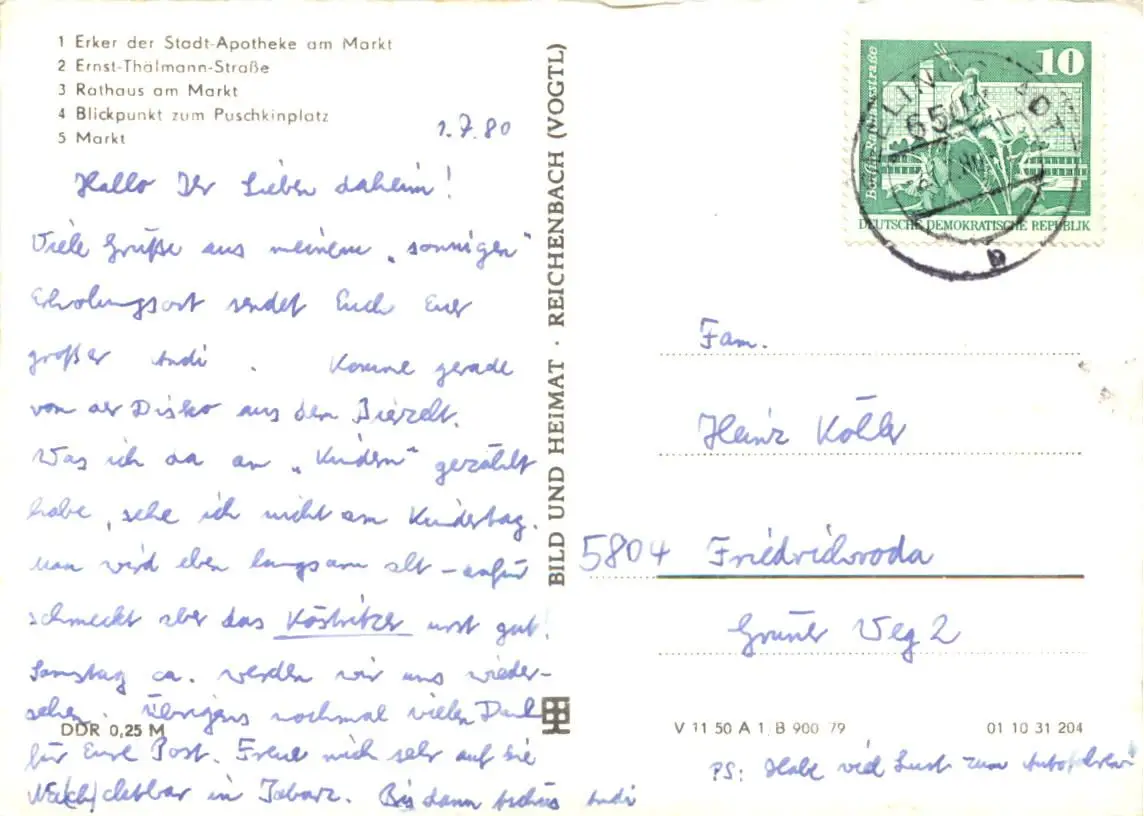 1 Erker der Stadt-Apotheke am Markt
2 Ernst-Thälmann-Straße
3 Rathaus am Markt
4 Blickpunkt zum Puschkinplatz
5 Markt
1.7.80
Hallo Ihr Lieben daheim!
Viele Grüße aus meinem „sonnigen“
Erholungsort sendet Euch Euer
großer Andi. Komme gerade
von der Disko aus dem Bierzelt.
Was ich da an „Kindern“ gezählt
habe, sehe ich nicht am Kindertag.
Man wird eben langsam alt – dafür
schmeckt aber das Köstritzer urst gut!
Samstag ca. werden wir uns wieder-
sehen. Übrigens nochmal vielen Dank
für Eure Post. Freue mich sehr auf die
in Tabarz. Bis dann tschüs Andi
DDR 0,25 M
BILD UND HEIMAT · REICHENBACH (VOGTL)
10
Berlin-Rathausstraße
DEUTSCHE DEMOKRATISCHE REPUBLIK
650
b
Fam.
Heinz Köhler
5804 Friedrichroda
Grüner Weg 2
V 11 50 A 1 B 900 79
01 10 31 204
PS: Habe viel Lust zum Autofahren